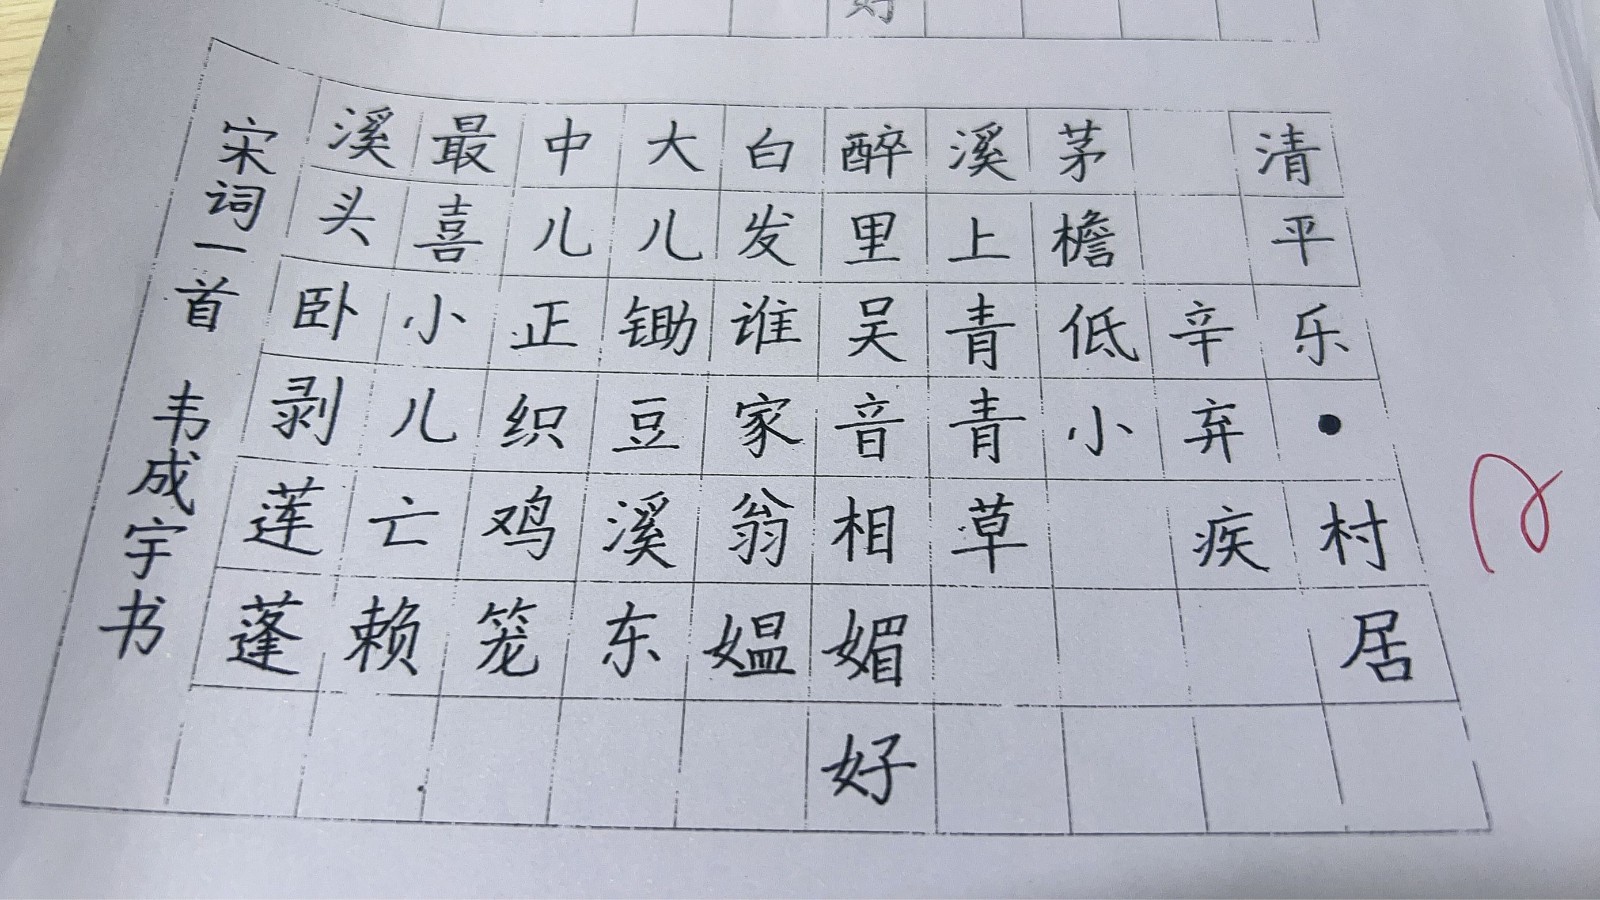 好
清平乐·村居
辛弃疾
茅檐低小
溪上青青草
醉里吴音相媚好
白发谁家翁媪
大儿锄豆溪东
中儿正织鸡笼
最喜小儿亡赖
溪头卧剥莲蓬
宋词一首 韦成宇书